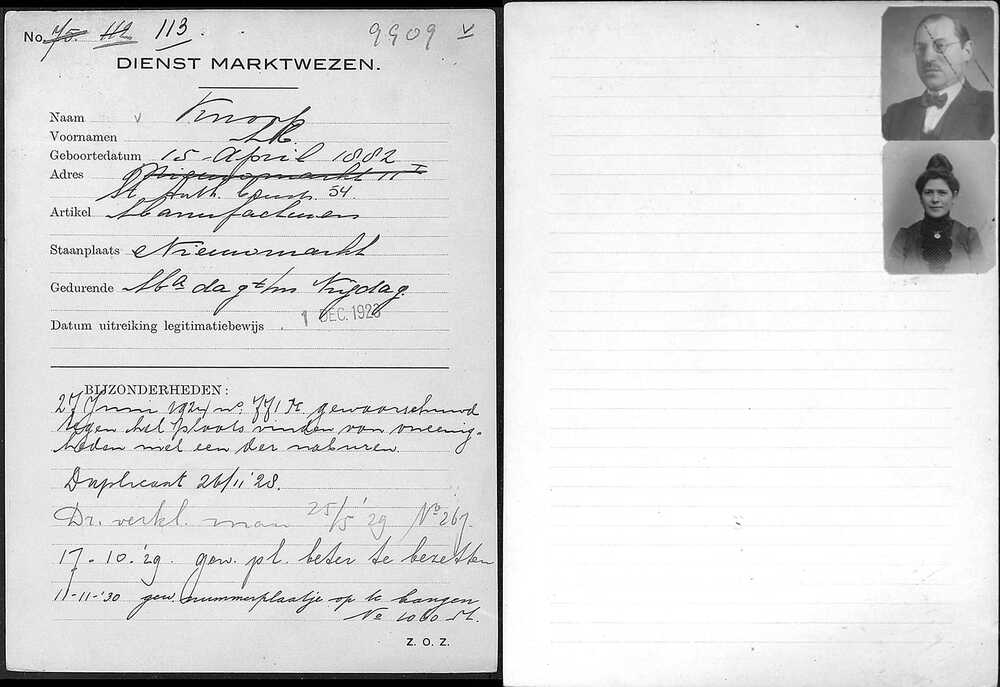 No. 75. 112 113. 9909 V
DIENST MARKTWEZEN.
Naam v Knorp
Voornamen M.
Geboortedatum 15 April 1882
Adres Nieuwmarkt 11 I
St Anth. breestr. 54.
Artikel Manufacturen
Staanplaats Nieuwmarkt
Gedurende Ma dag t/m Vrijdag.
Datum uitreiking legitimatiebewijs 1 DEC. 1923
BIJZONDERHEDEN:
27 Juni 1924 no. 771 M. gewaarschuwd
tegen het plaats vinden van oneenig-
heden met een der naburen.
Duplicaat 26/11 '28.
Dr. verkl. man 25/5 '29 No 267.
17-10-'29. gew. pl. beter te bezetten
11-11-'30 gew. nummerplaatje op te hangen
No 1060 M.
Z. O. Z.